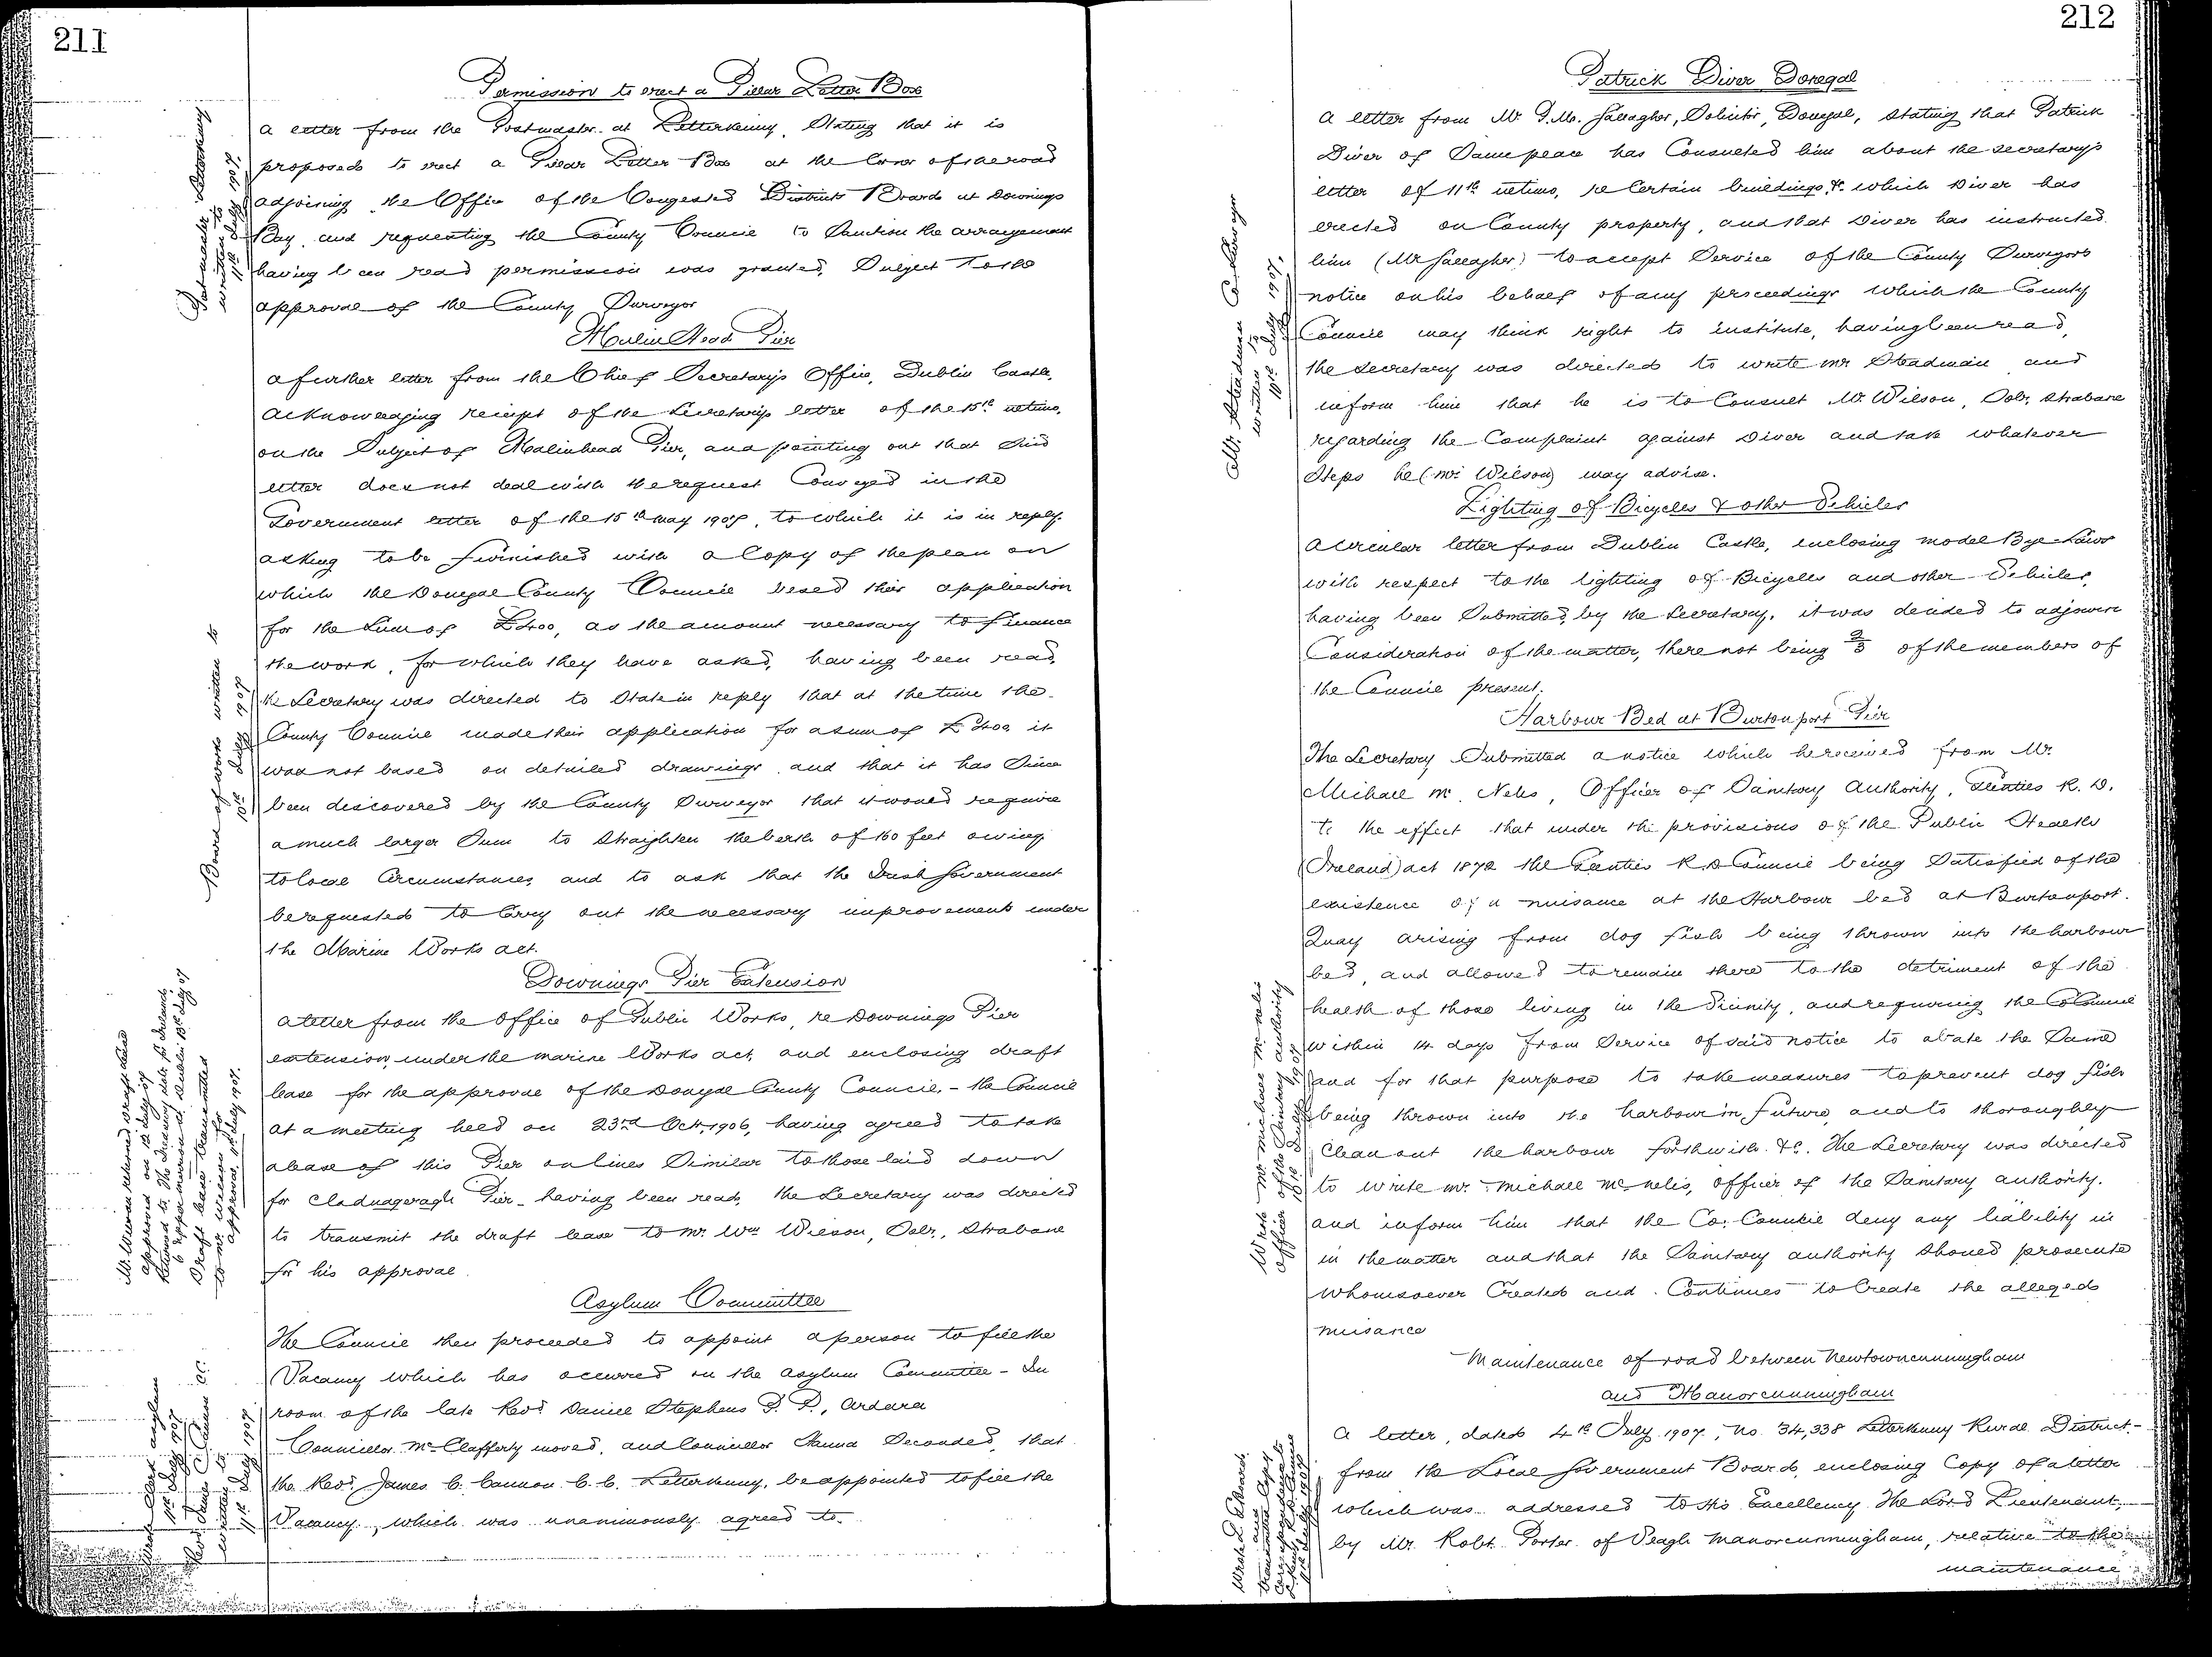 211
Permission to erect a Pillar Letter Box
a letter from the Postmaster at Letterkenny, Stating that it is
proposed to erect a Pillar Letter Box at the Corner of the road
adjoining the Office of the Congested Districts Board at Downings
Bay, and requesting the County Council to Sanction the arrangement
having been read permission was granted, Subject to the
approval of the County Surveyor
Postmaster Letterkenny
written to
11th July 1907.
Malin Head Pier
a further letter from the Chief Secretary's Office, Dublin Castle,
acknowledging receipt of the Secretary's letter of the 15th ultimo,
on the Subject of Malinhead Pier, and pointing out that Said
letter does not deal with the request Conveyed in the
Government letter of the 15th May 1907, to which it is in reply.
asking to be furnished with a Copy of the plan on
which the Donegal County Council based their application
for the Sum of £400, as the amount necessary to finance
the work, for which they have asked, having been read,
the Secretary was directed to State in reply that at the time the
County Council made their application for a sum of £400 it
was not based on detailed drawings and that it has Since
been discovered by the County Surveyor that it would require
a much larger Sum to Straighten the berth of 160 feet owing
to local Circumstances and to ask that the Irish Government
be requested to Carry out the necessary improvements under
the Marine Works act.
Board of works written to
10th July 1907
Downings Pier Extension
a letter from the Office of Public Works, re Downings Pier
extension, under the marine Works act, and enclosing draft
lease for the approval of the Donegal County Council, - the Council
at a meeting held on 23rd Oct, 1906, having agreed to take
a lease of this Pier on lines Similar to those laid down
for Cladnageragh Pier - having been read, the Secretary was directed
to transmit the draft lease to Mr. Wm Wilson, Solr., Strabane
for his approval.
Mr. Wilson returned draft lease
approved on 12 July 07
Draft lease transmitted
to Mr. Wilson for
approval, 11th July 1907.
Asylum Committee
The Council then proceeded to appoint a person to fill the
Vacancy which has occurred on the Asylum Committee - In
room of the late Revd Daniel Stephens P. P., Ardara
Councillor McClafferty moved, and Councillor Hanna Seconded, that
the Revd. James C. Cannon C. C. Letterkenny, be appointed to fill the
Vacancy, which was unanimously agreed to.
Wrote Clerk asylum
11th July 1907
Revd James C Cannon CC.
written to
11th July 1907
212
Patrick Diver Donegal
a letter from Mr. P. M. Gallagher, Solicitor, Donegal, Stating that Patrick
Diver of Same place has Consulted him about the secretary's
letter of 11th ultimo, re Certain buildings &c which Diver has
erected on County property, and that Diver has instructed
him (Mr Gallagher) to accept Service of the County Surveyors
notice on his behalf of any proceedings which the County
Council may think right to institute, having been read,
the secretary was directed to write Mr Steadman and
inform him that he is to Consult Mr. Wilson, Solr, Strabane
regarding the Complaint against Diver and take whatever
Steps he (Mr Wilson) may advise.
Mr. Steadman Co. Surveyor
written to
10th July 1907.
Lighting of Bicycles & other Vehicles
a circular letter from Dublin Castle, enclosing model Bye-Laws
with respect to the lighting of Bicycles and other Vehicles,
having been Submitted, by the Secretary, it was decided to adjourn
Consideration of the matter, there not being 2/3 of the members of
the Council present.
Harbour Bed at Burtonport Pier
The Secretary Submitted a notice which he received from Mr.
Michael Mc Nelis, Officer of Sanitary Authority, Glenties R. D.
to the effect that under the provisions of the Public Health
(Ireland) act 1878 the Glenties R.D Council being Satisfied of the
existence of a nuisance at the Harbour bed at Burtonport.
Quay arising from dog fish being thrown into the harbour
bed, and allowed to remain there to the detriment of the
health of those living in the Vicinity, and requiring the Co Council
within 14 days from Service of said notice to abate the Same
and for that purpose to take measures to prevent dog fish
being thrown into the harbour in future, and to thoroughly
Clean out the harbour forthwith &c. The Secretary was directed
to write Mr. Michael McNelis, officer of the Sanitary authority.
and inform him that the Co. Council deny any liability in
in the matter and that the Sanitary authority Should prosecute
whomsoever Created and Continues to Create the alleged
nuisance
Wrote Mr Michael McNelis
officer of the Sanitary authority
10th July 1907
Maintenance of road between Newtowncunningham
and Manorcunningham
a letter, dated 4th July 1907, No. 34,338 Letterkenny Rural District -
from the Local Government Board, enclosing Copy of a letter
which was addressed to His Excellency The Lord Lieutenant,
by Mr. Robt. Porter of Veagh Manorcunningham, relative to the
maintenance